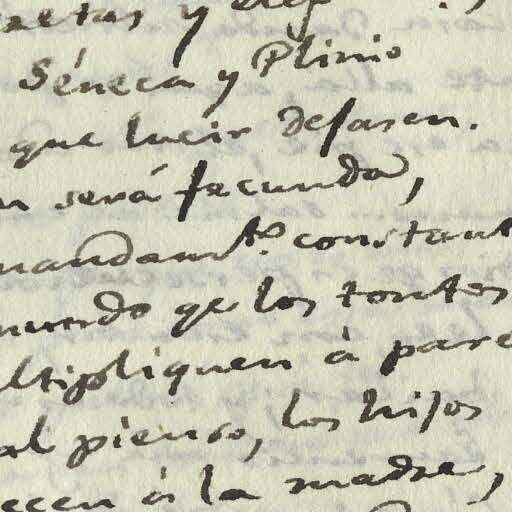 y
Séneca y Plinio
que lucir desasen.
será fecunda,
mandamto. constant
mundo qe los tontos
ltipliquen à pare
al pienso, los hijos
ecen à la madre,